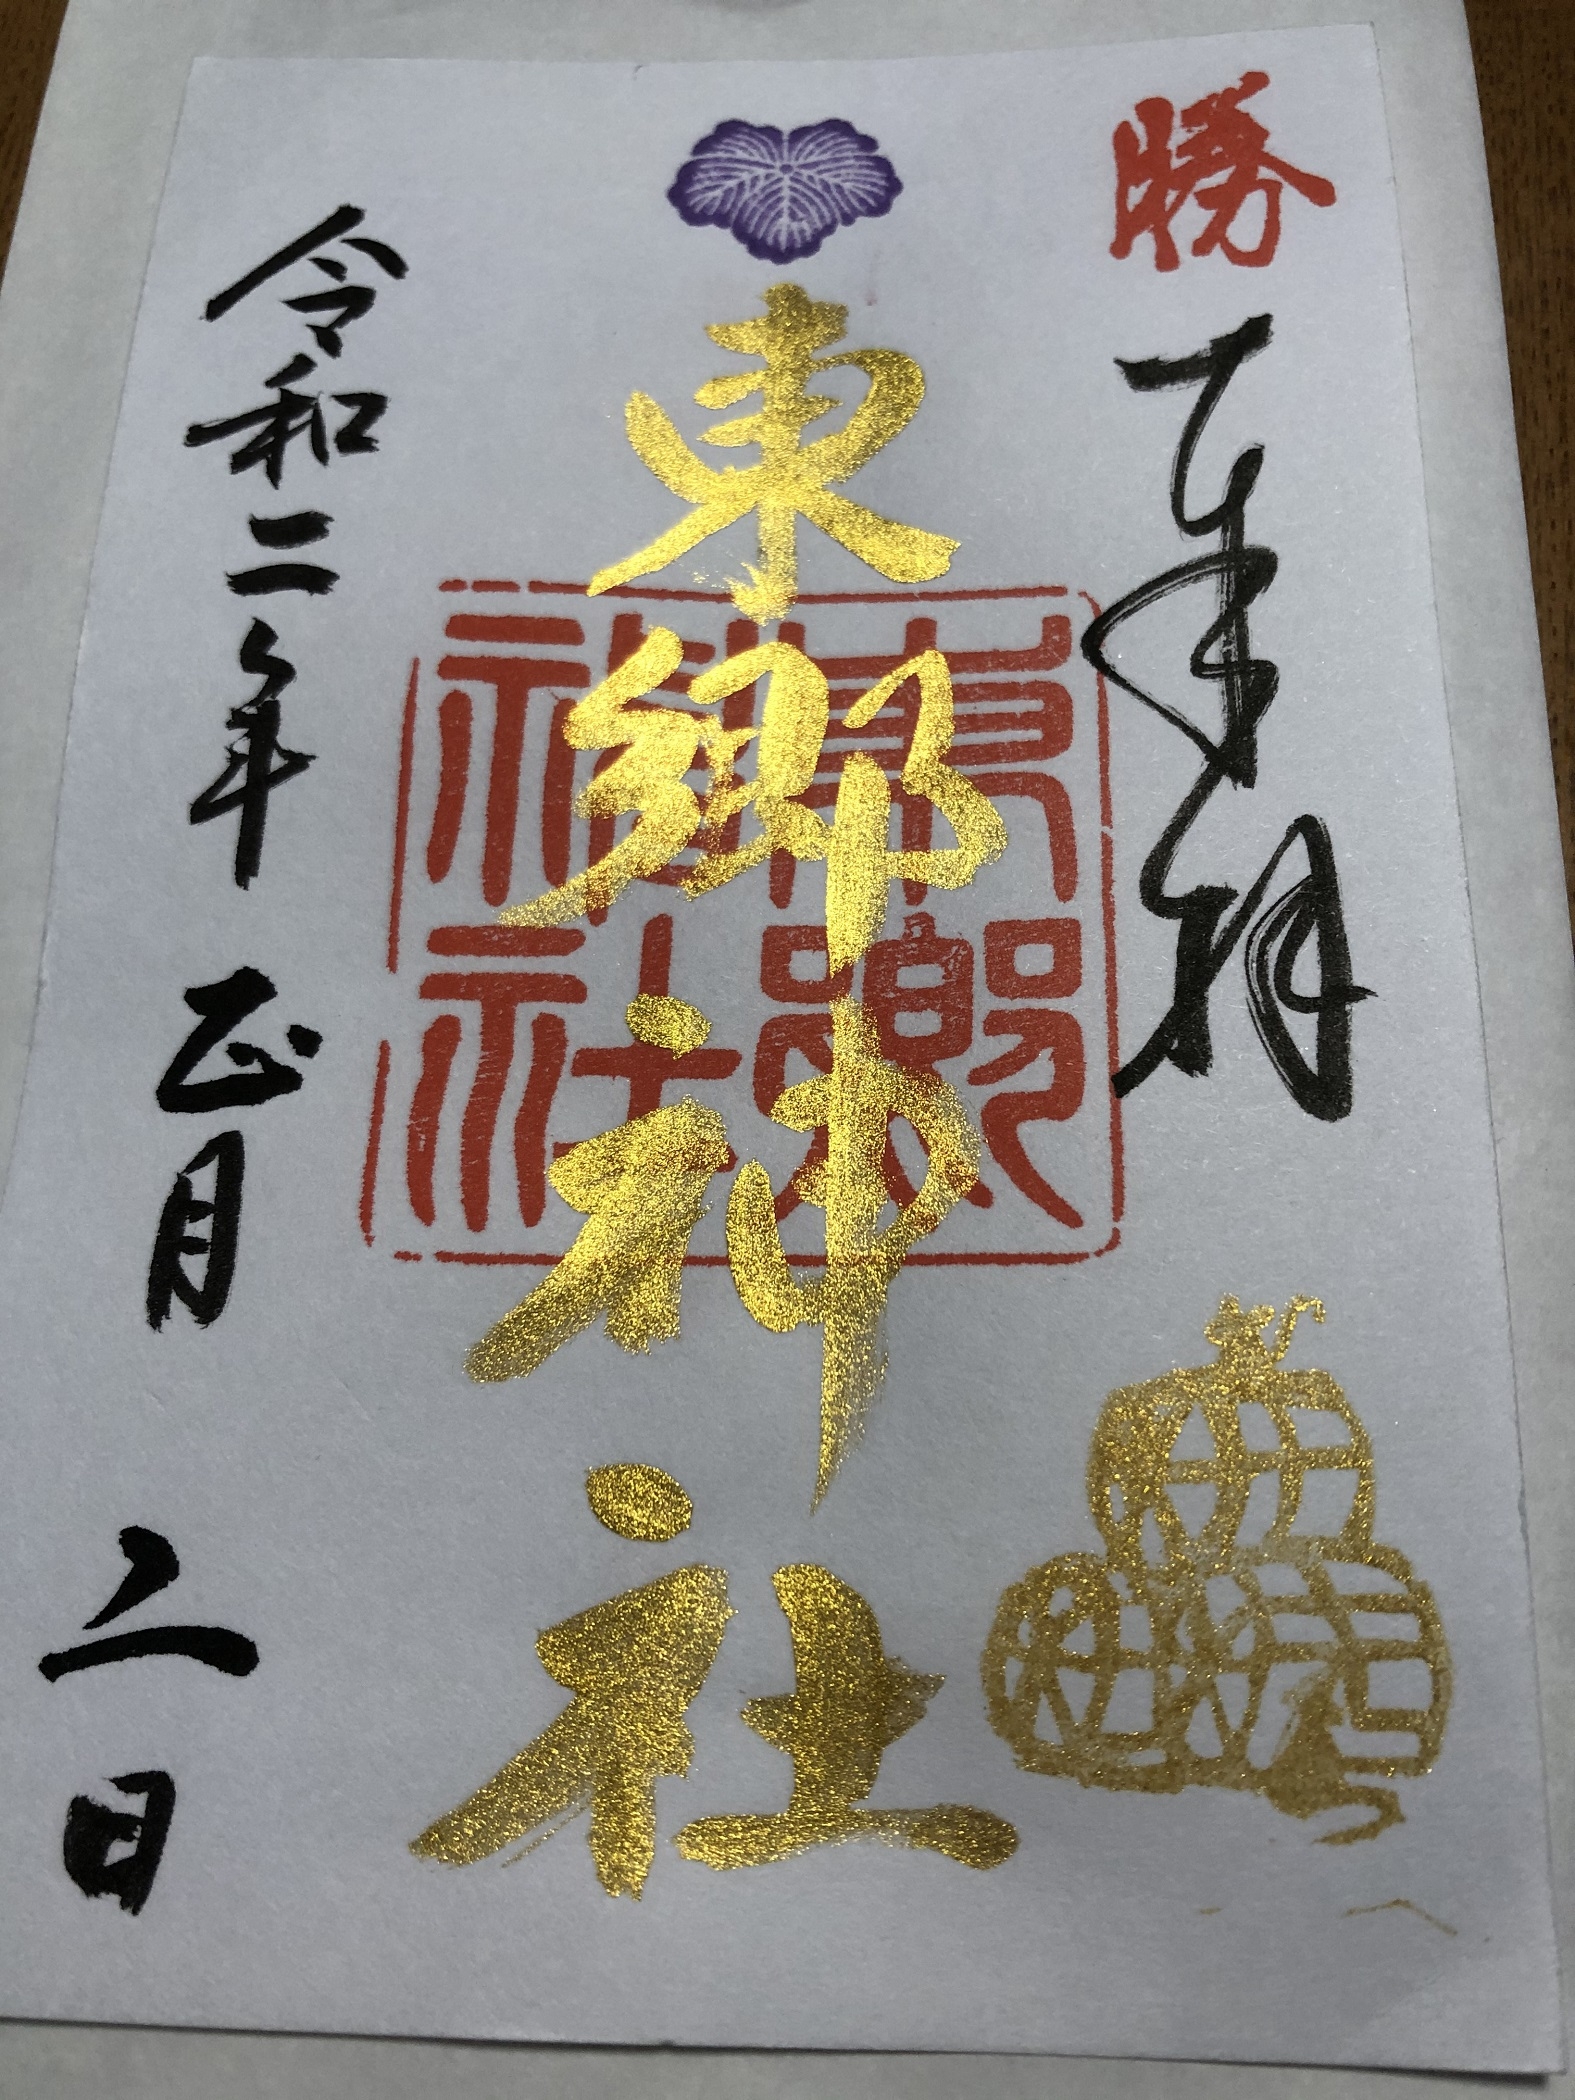 勝
奉拝
東郷神社
東郷神社
令和二年 正月 二日